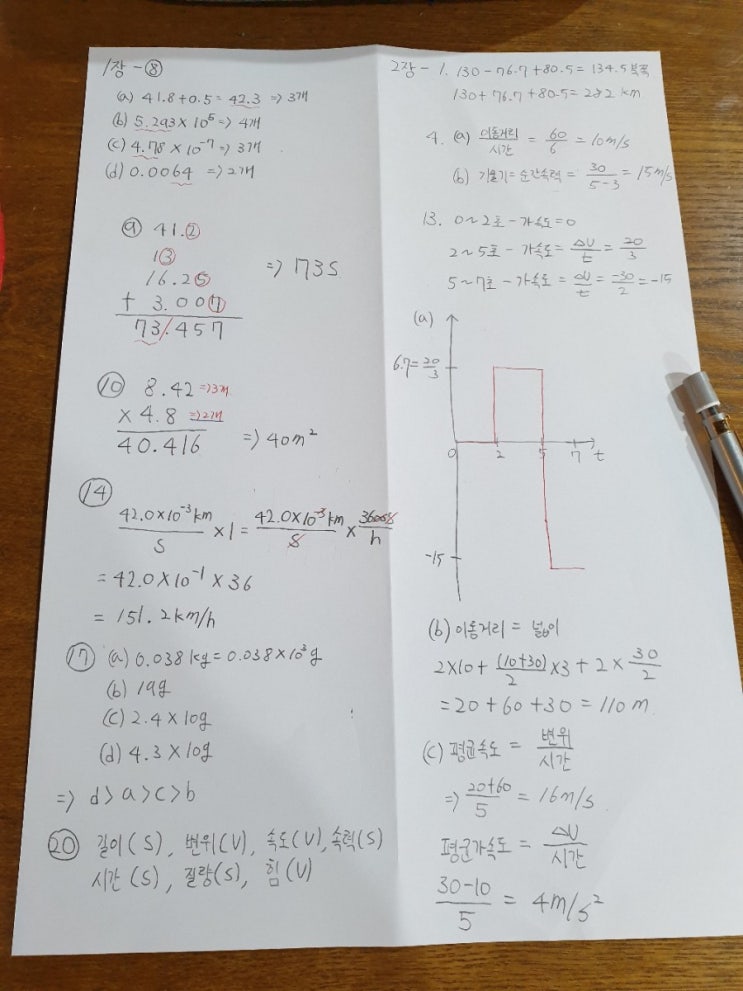 1장 - ⑧
(a) 41.8+0.5 = 42.3 => 3개
(b) 5.293×10⁵ => 4개
(c) 4.78 × 10⁻⁷ => 3개
(d) 0.0064 => 2개
⑨ 41.2
13
16.25
+ 3.007
73.457
=> 73s
⑩ 8.42 => 3개
× 4.8 => 2개
40.416 => 40m²
⑭
42.0×10⁻³km/s × 1 = 42.0×10⁻³km/s × 3600s/h
= 42.0×10⁻¹×36
= 151.2km/h
⑰ (a) 0.038kg = 0.038×10³g
(b) 19g
(c) 2.4×10g
(d) 4.3×10g
=> d>a>c>b
⑳ 길이(S), 변위(V), 속도(V), 속력(S)
시간(S), 질량(S), 힘(V)
2장 - 1. 130-76.7+80.5=134.5 북쪽
130+76.7+80.5=282km
4. (a) 이동거리/시간 = 60/6 = 10m/s
(b) 기울기=순간속력= 30/5-3 = 15m/s
13. 0~2초-가속도=0
2~5초-가속도= ΔV/t = 20/3
5~7초-가속도= ΔV/t = -30/2 = -15
(a)
6.7=20/3
0 2 5 7 t
-15
(b) 이동거리 = 넓이
2×10+ (10+30)/2 ×3+2× 30/2
=20+60+30=110m
(c) 평균속도 = 변위/시간
=> 20+60/5 = 16m/s
평균가속도 = ΔV/시간
30-10/5 = 4m/s²